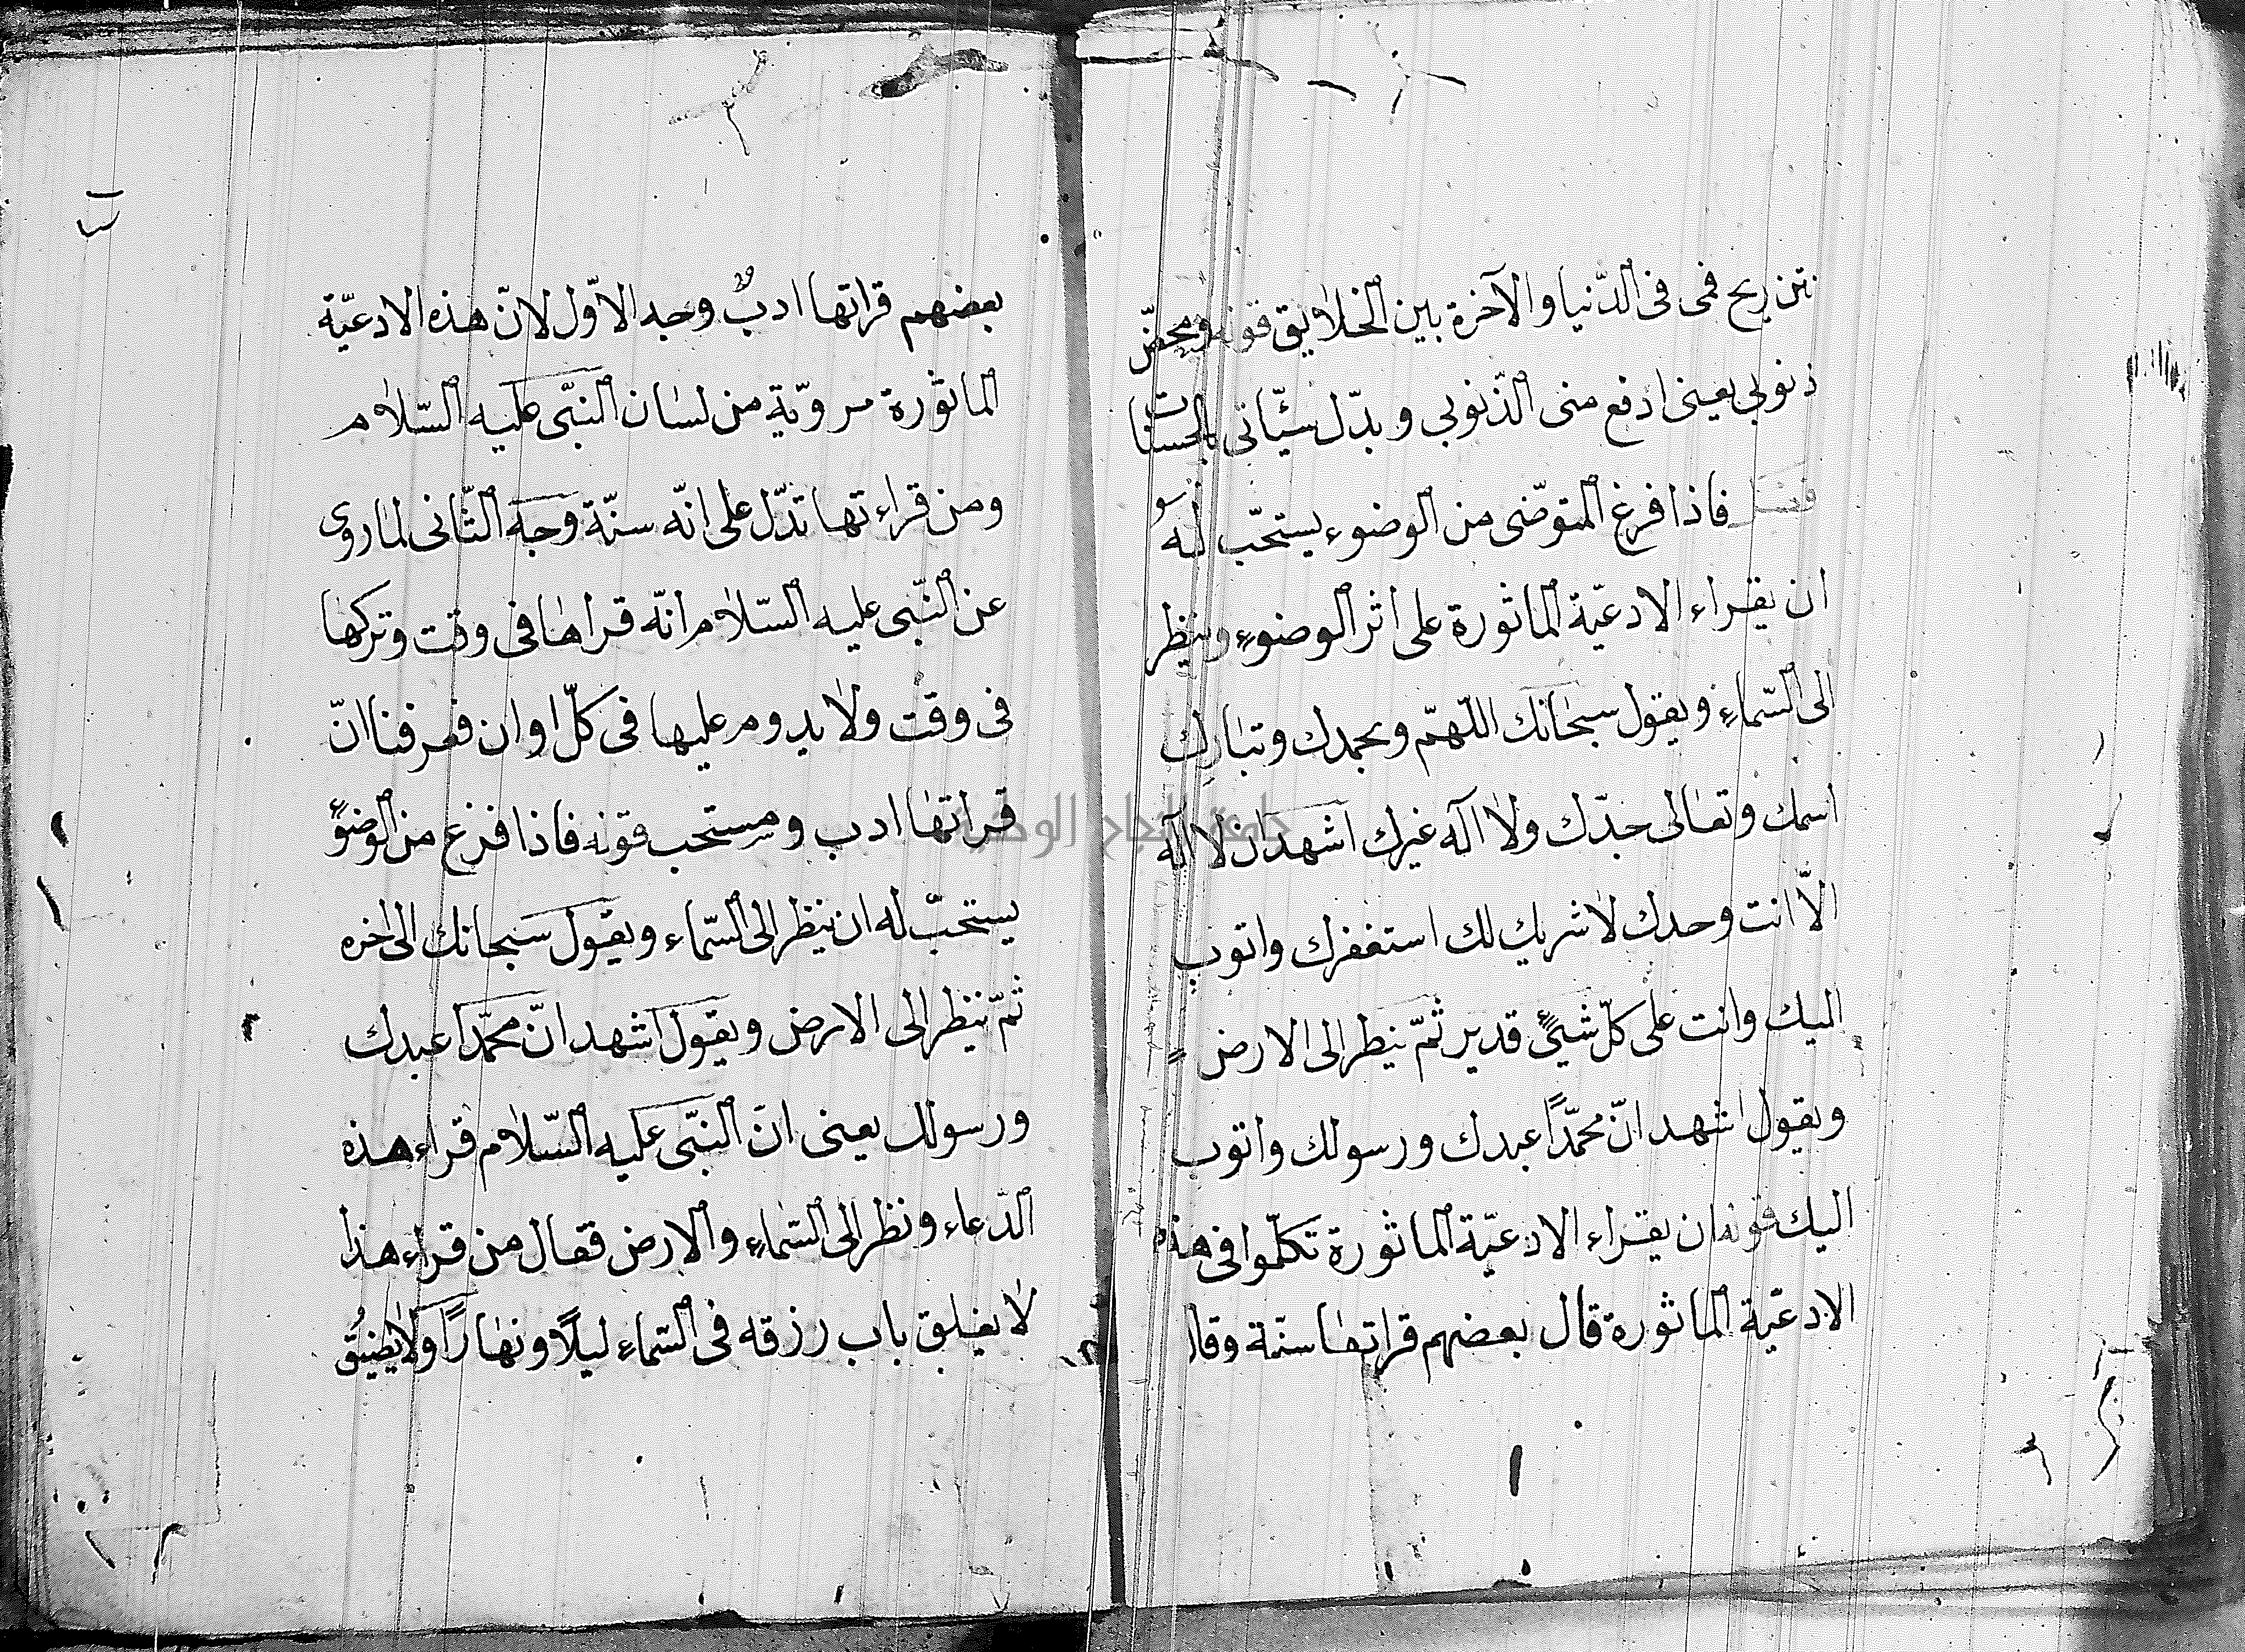 نتن ريح فمى فى الدّنيا والآخرة بين الخلايق قوله ومحّض
ذنوبى يعنى ادفع منى الذّنوبى وبدّل سيّئاتى بالحسنات
فصل فاذا فرغ المتوضّى من الوضوء يستحّب له
ان يقراء الادعيّة الماثورة على أثر الوضوءِ وينظر
الى السّماءِ ويقول سبحانك اللّهمّ وبحمدك وتبارك
اسمك وتعالى جدّك ولا اله غيرك اشهد ان لا اله
الّا انت وحدك لا شريك لك استغفرك واتوب
اليك وانت على كلّ شيئٍ قدير ثمّ ينظر الى الارض
ويقول اشهد انّ محمّدًا عبدك ورسولك واتوب
اليك قوله ان يقراء الادعيّة الماثورة تكلّموا فى هذه
الادعيّة الماثورة قال بعضهم قراتها سنّة وقال
بعضهم قراتها ادبٌ وجه الاوّل لانّ هذه الادعيّة
الماثورة مرويّة من لسان النبّى عليه السّلام
ومن قراءتها تدّل على انّه سنّة وجه الثّانى لما روى
عن النّبى عليه السّلام انّه قراها فى وقت وتركها
فى وقت ولا يدوم عليها فى كلّ اوان فعرفنا انّ
قراتها ادب ومستحب قوله فاذا فرغ من الوضوءٍ
يستحبّ له ان ينظر الى السّماء ويقول سبحانك الى اخره
ثمّ ينظر الى الارض ويقول اشهد انّ محمّدًا عبدك
ورسولك يعنى انّ النبّى عليه السّلام قراء هذه
الدّعاء ونظر الى السّماءِ والارض فقال من قراء هذا
لا يغلق باب رزقه فى السّماء ليلًا ونهارًا ولا يضيُق
جامعة النجاح الوطنية